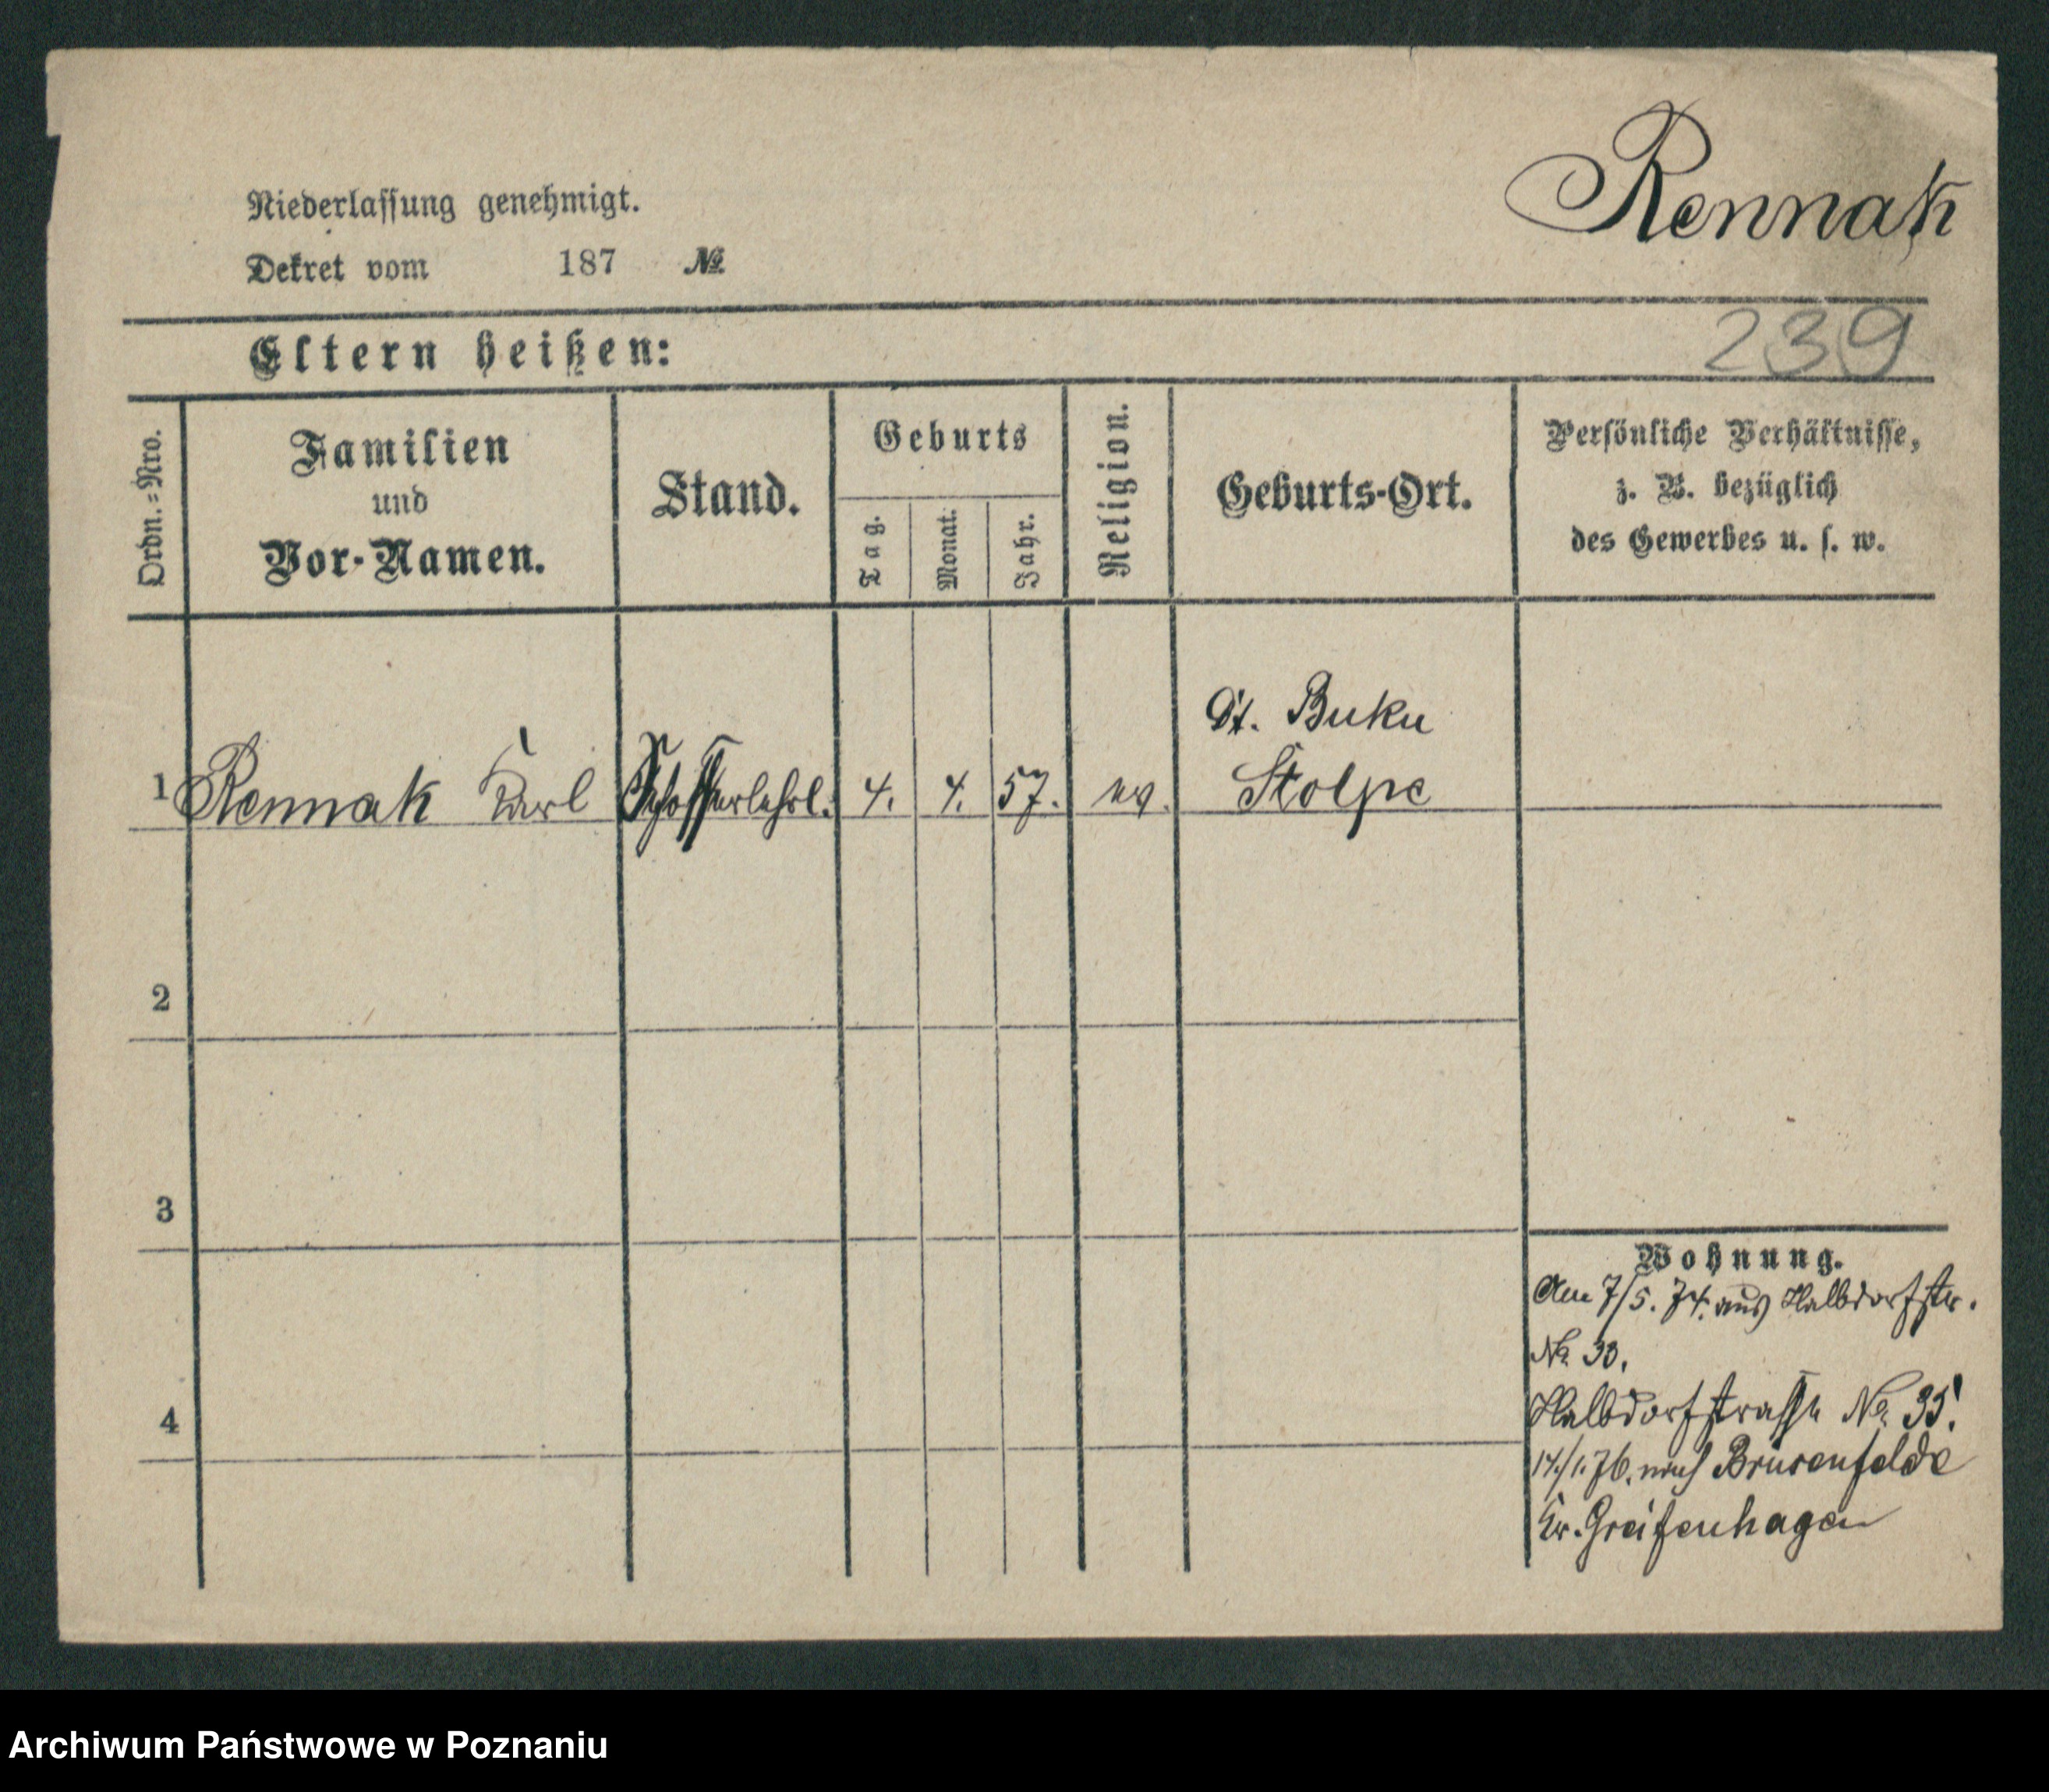 Rennak
Niederlassung genehmigt.
Dekret vom 187 №
239
Eltern heißen:
Ordn.=Nro.
Familien
und
Vor-Namen.
Stand.
Geburts
Tag.
Monat.
Jahr.
Religion.
Geburts-Ort.
Persönliche Verhältnisse,
z. B. bezüglich
des Gewerbes u. s. w.
Dt. Buku
1 Rennak Karl Schlosserlehrl. 4. 4. 57. ev. Stolpe
2
3
4
Wohnung.
Am 7/5. 74. aus Halbdorfstr.
No 30.
Halbdorfstrasse No 35.
14/1.76. nach Brüsenfelde
Kr. Greifenhagen
Archiwum Państwowe w Poznaniu